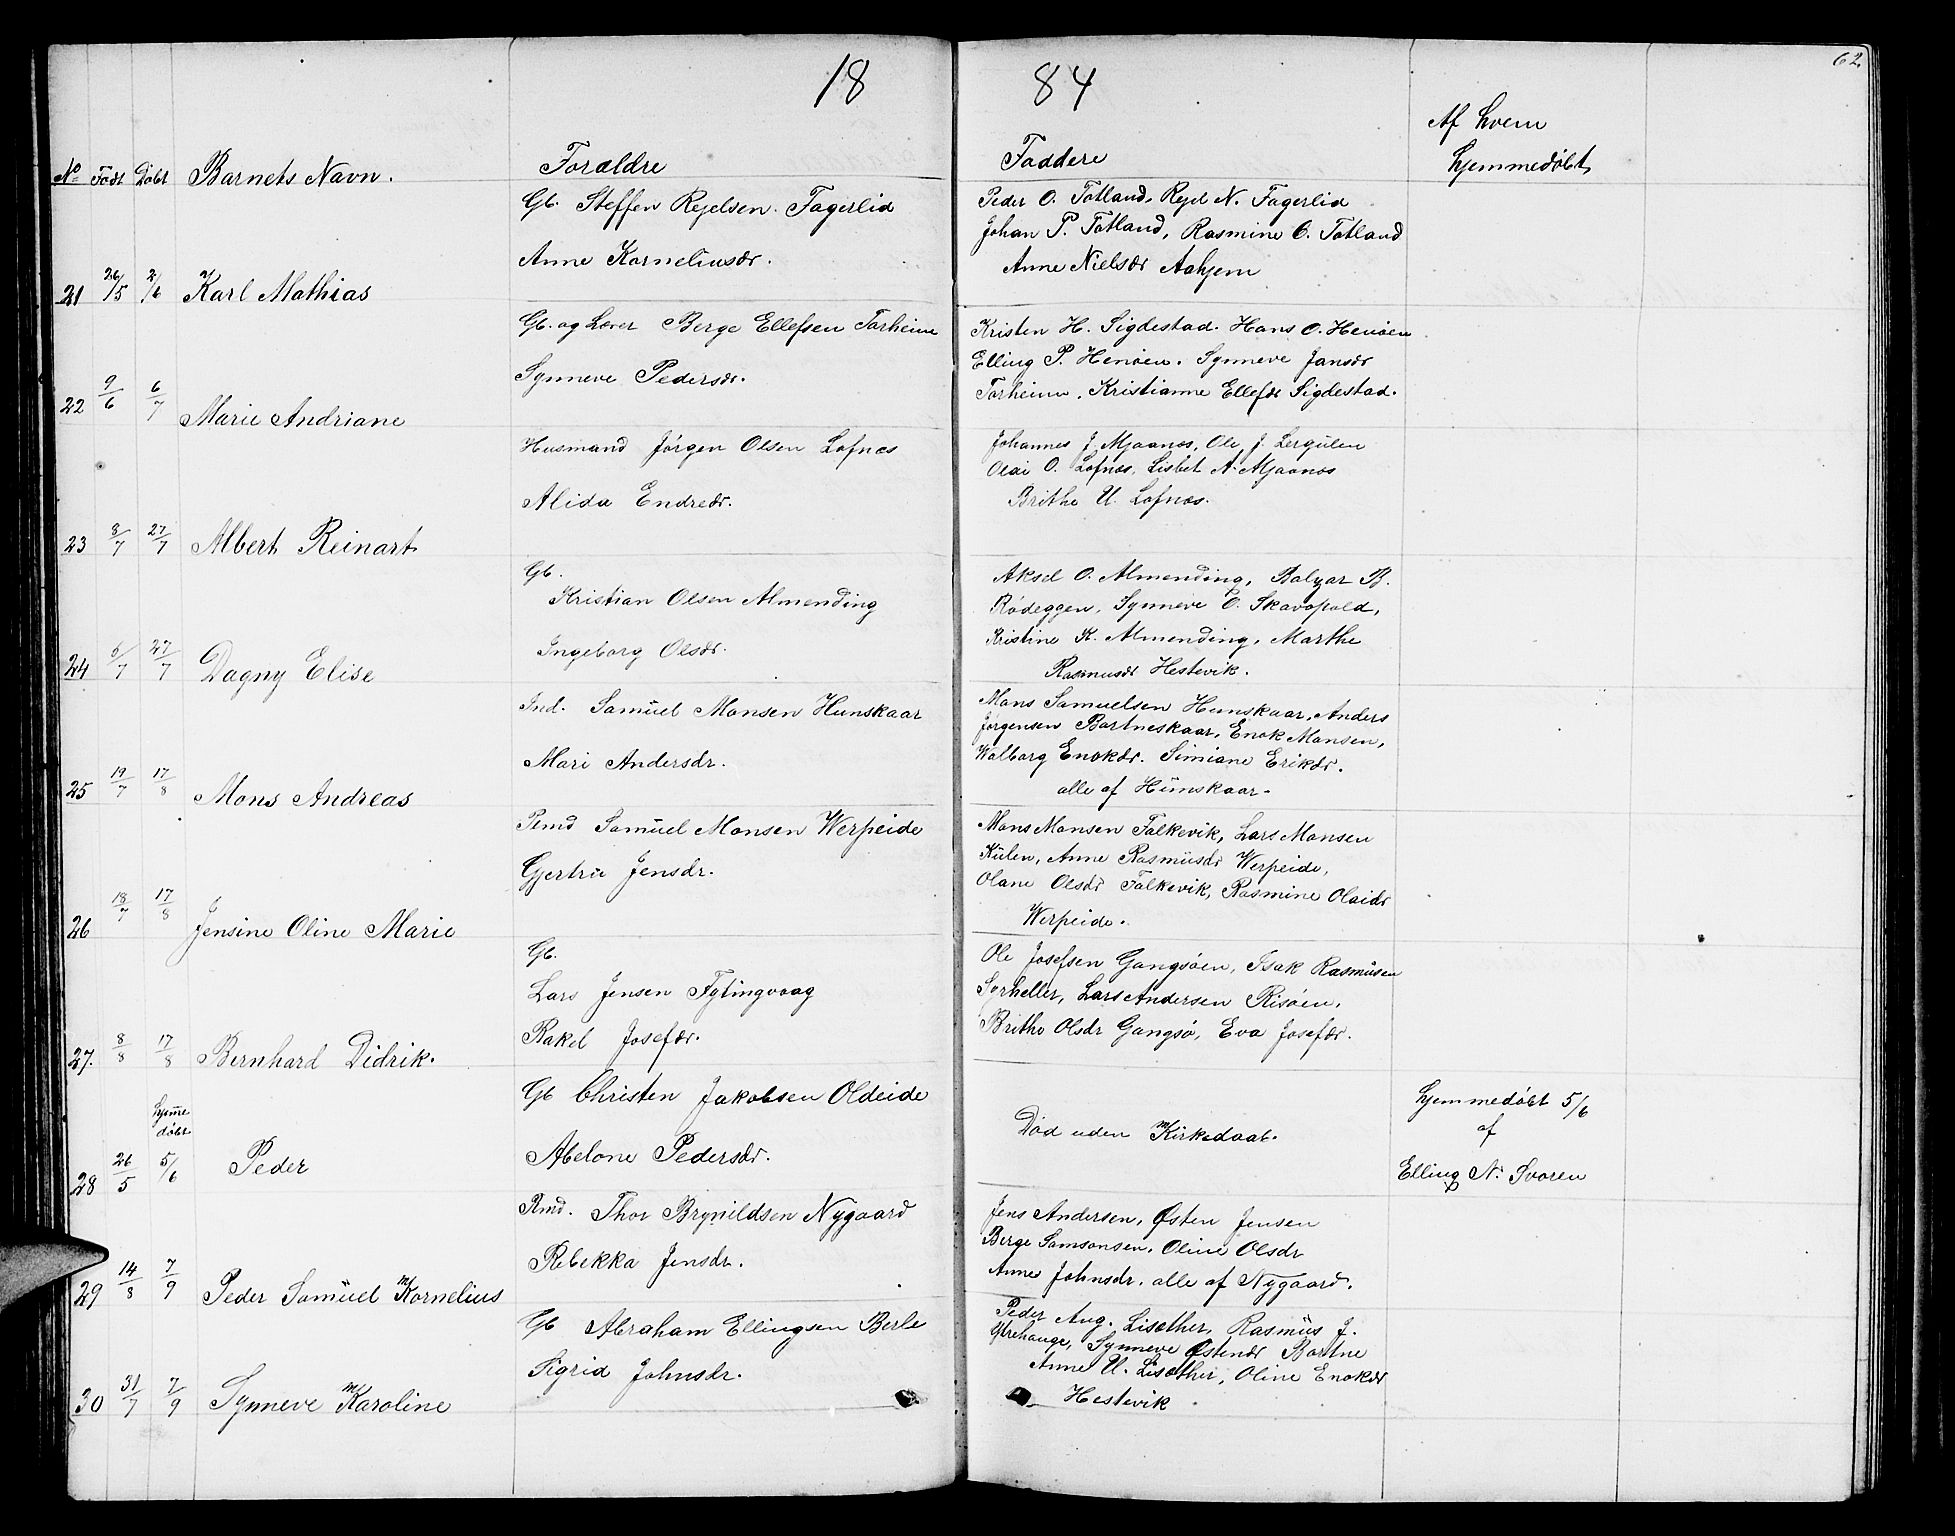 18 84
62.
No Født Døbt Barnets Navn. Forældre Faddere Af hvem hjemmedøbt
21 26/5 2/6 Karl Mathias
Gb. Steffen Rejelsen. Fagerlid
Anne Korneliusdr.
Peder O. Totland, Rejel N. Fagerlid
Johan P. Totland, Rasmine O. Totland
Anne Nielsdr Aahjem
22 9/6 6/7 Marie Andriane
Gb. og Lærer Berge Ellefsen Torheim
Synneve Pedersdr.
Kristen H. Sigdestad. Hans O. Henøen
Elling P. Henøen. Synneve Jansdr
Torheim, Kristianne Ellefdr Sigdestad.
23 8/7 27/7 Albert Reinart
Husmand Jørgen Olsen Lofnæs
Alida Endredr.
Johannes J. Mjaanæs, Ole J. Lergulen
Olai O. Lofnæs, Lisbet A. Mjaanæs
Brithe U. Lofnæs.
24 6/7 27/7 Dagny Elise
Gb.
Kristian Olsen Almending
Ingeborg Olsdr.
Aksel O. Almending, Balzar B.
Rødeggen, Synneve O. Skavøpold,
Kristine K. Almending, Marthe
Rasmusdr Hestevik.
25 19/7 17/8 Mons Andreas
Ind. Samuel Monsen Hunskaar
Mari Andersdr.
Mons Samuelsen Hunskaar, Anders
Jørgensen Bortneskaar, Enok Monsen,
Walborg Enokdr. Simiane Erikdr.
alle af Hunskaar.
26 18/7 17/8 Jensine Oline Marie
Pmd Samuel Monsen Werpeide
Gjertru Jensdr.
Mons Monsen Falkevik, Lars Monsen
Kulen, Anne Rasmusdr Werpeide,
Olane Olsdr Falkevik, Rasmine Olaidr
Werpeide.
27. 8/8 17/8 Bernhard Didrik.
Gb.
Lars Jensen Fytingvaag
Rakel Josefdr.
Ole Josefsen Gangsøen, Isak Rasmusen
Syrheller, Lars Andersen Risøen,
Brithe Olsdr Gangsø, Eva Josefdr.
28 26/5 hjemedøbt 5/6 Peder
Gb Christen Jakobsen Oldeide
Abelone Pedersdr.
Død uden Kirkedaab.
hjemmedøbt 5/6
af
Elling N. Svoren
29 14/8 7/9 Peder Samuel Kornelius
Rmd. Thor Brynildsen Nygaard
Rebekka Jensdr.
Jens Andersen, Østen Jensen
Berge Samsonsen, Oline Olsdr
Anne Johnsdr. alle af Nygaard.
30 31/7 7/9 Synneve Karoline
Gb Abraham Ellingsen Berle
Sigrid Johnsdr.
Peder Aug. Lisæther, Rasmus J.
Ytrehauge, Synneve Østendr Bortne
Anne U. Lisæther, Oline Enokdr
Hestevik